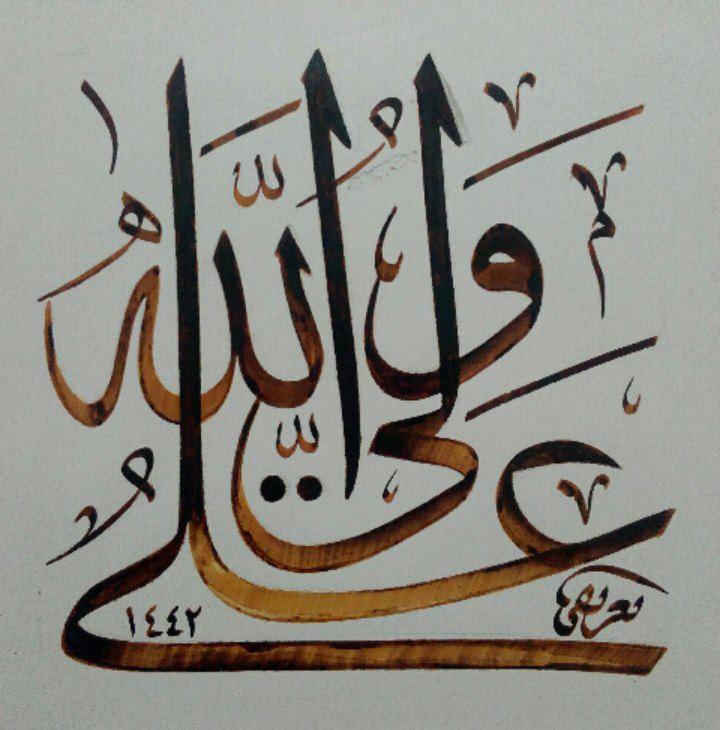 علي ولي الله
١٤٤٢